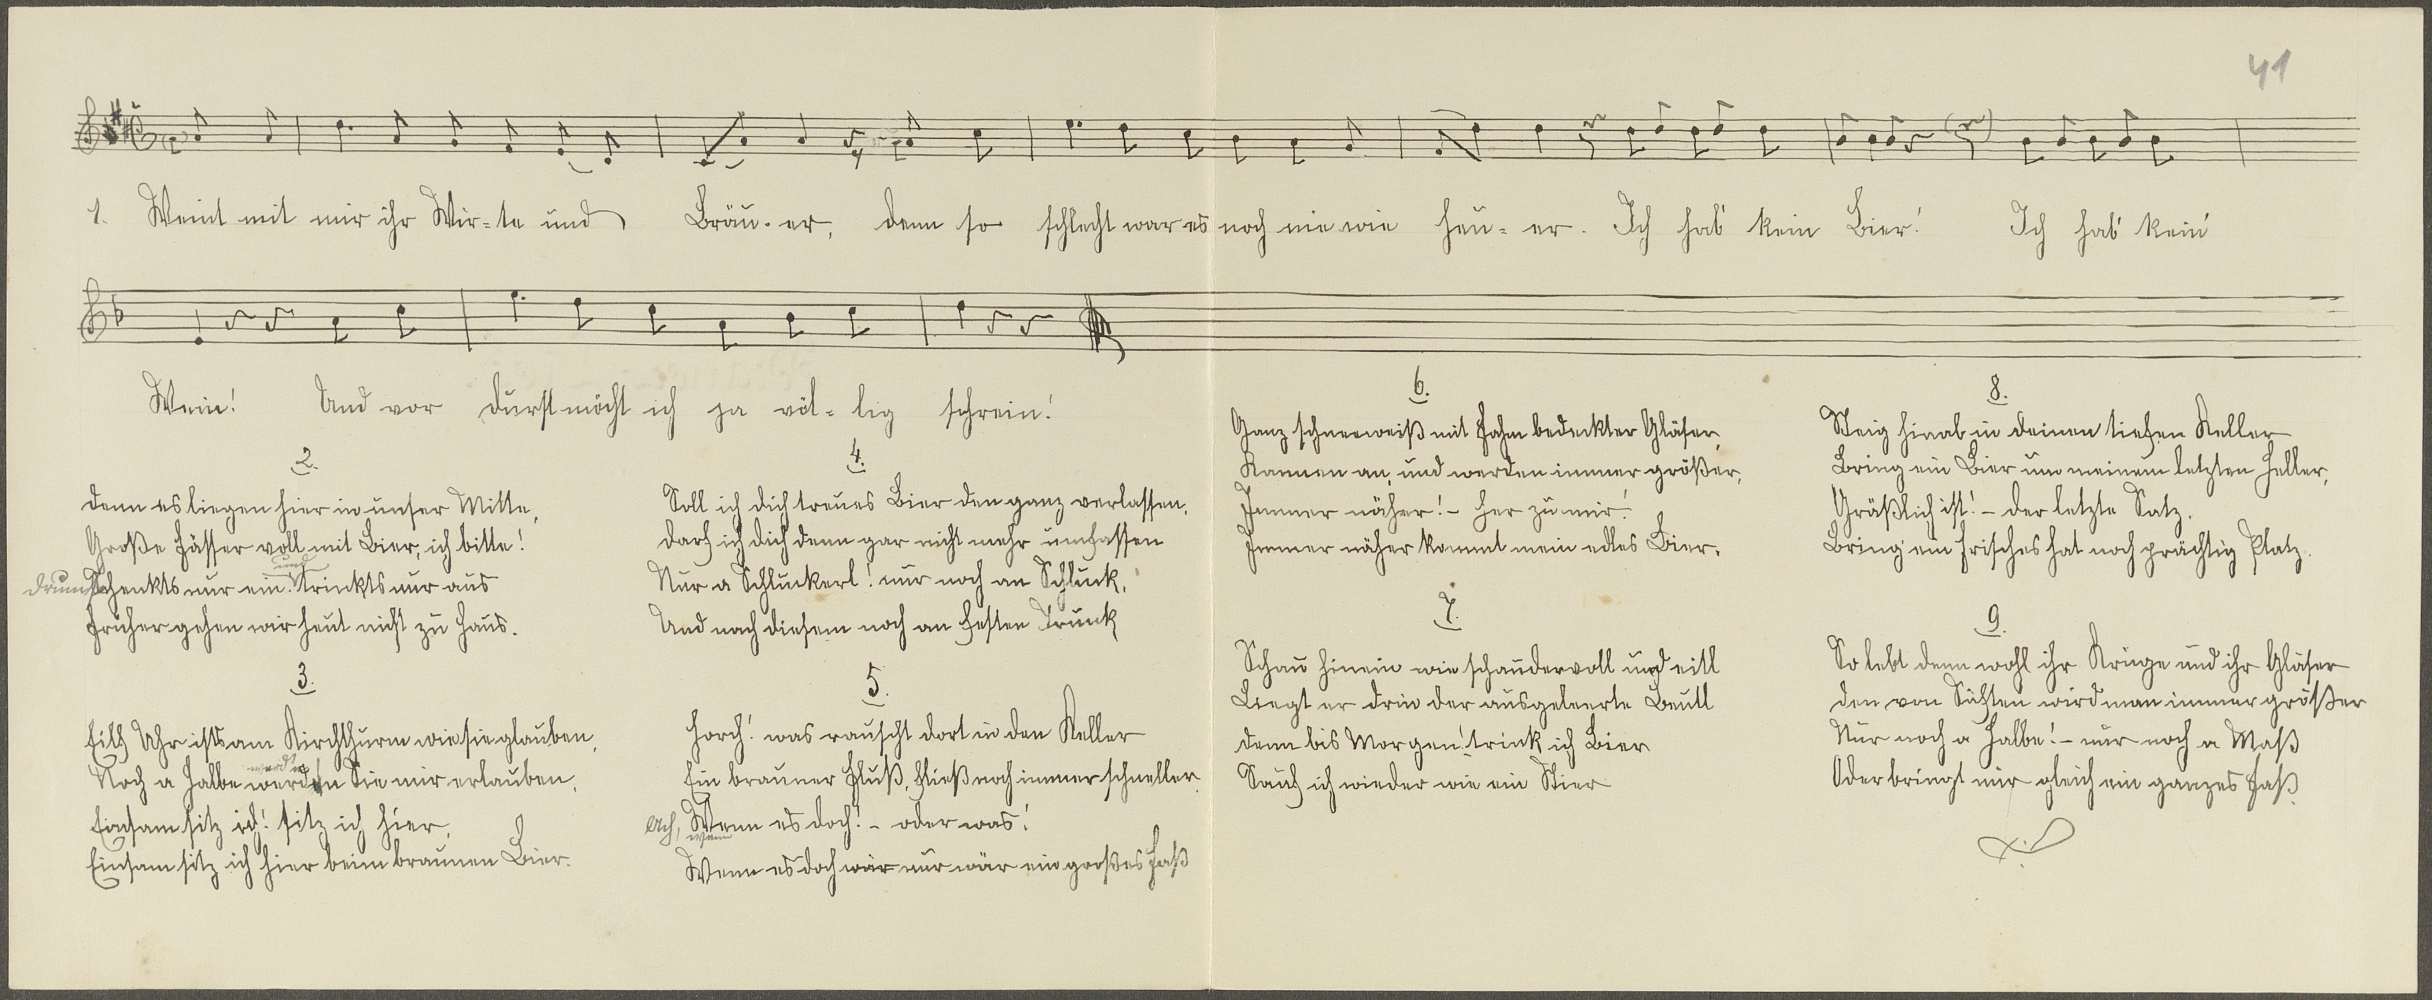 41
1. Weint mit mir ihr Wir-te und Bräu-er, denn so schlecht war es noch nie wie heu-er. Ich hab' kein Bier! Ich hab' kein'
Wein! Und vor Durst möcht ich ja völ-lig schrein!
2.
Denn es liegen hier in unser Mitte,
Große Fässer voll mit Bier, ich bitte!
drum Schenkts nur ein. und trinkts nur aus
Früher gehen wir heut nicht zu Haus.
3.
Eilf Uhr ists am Kirchthurm wie sie glauben,
Noch a Halbe werden Sie mir erlauben,
Einsam sitz ich! sitz ich hier,
Einsam sitz ich hier beim braunen Bier.
4.
Soll ich dich treues Bier den ganz verlassen,
Darf ich dich denn gar nicht mehr umfassen
Nur a Schluckerl! nur noch an Schluck,
Und nach diesem noch an festen Trunk
5.
Horch! was rauscht dort in den Keller
Ein brauner Fluß, fließ noch immer schneller
Ach, wenn Wenn es doch! - oder was!
Wenn es doch wär nur wär ein großes Faß
6.
Ganz schneeweiß mit Fahm bedeckter Gläser,
Kannen an, und werden immer größer,
Immer näher! - her zu mir!
Immer näher kommt mein edles Bier.
7.
Schau hinein wie schaudervoll und eitl
Liegt er drin der ausgeleerte Beutl
Denn bis Morgen! trink ich Bier
Sauf ich wieder wie ein Stier
8.
Steig hinab in deinen tiefen Keller
Bring ein Bier um meinem letzten Heller,
Gräßlich ist! - der letzte Satz,
Bring' ein frisches hat noch prächtig Platz.
9.
So lebt denn wohl ihr Krüge und ihr Gläser
Den von Säften wird man immer größer
Nur noch a Halbe! - nur noch a Maß
Oder bringt mir gleich ein ganzes Faß.